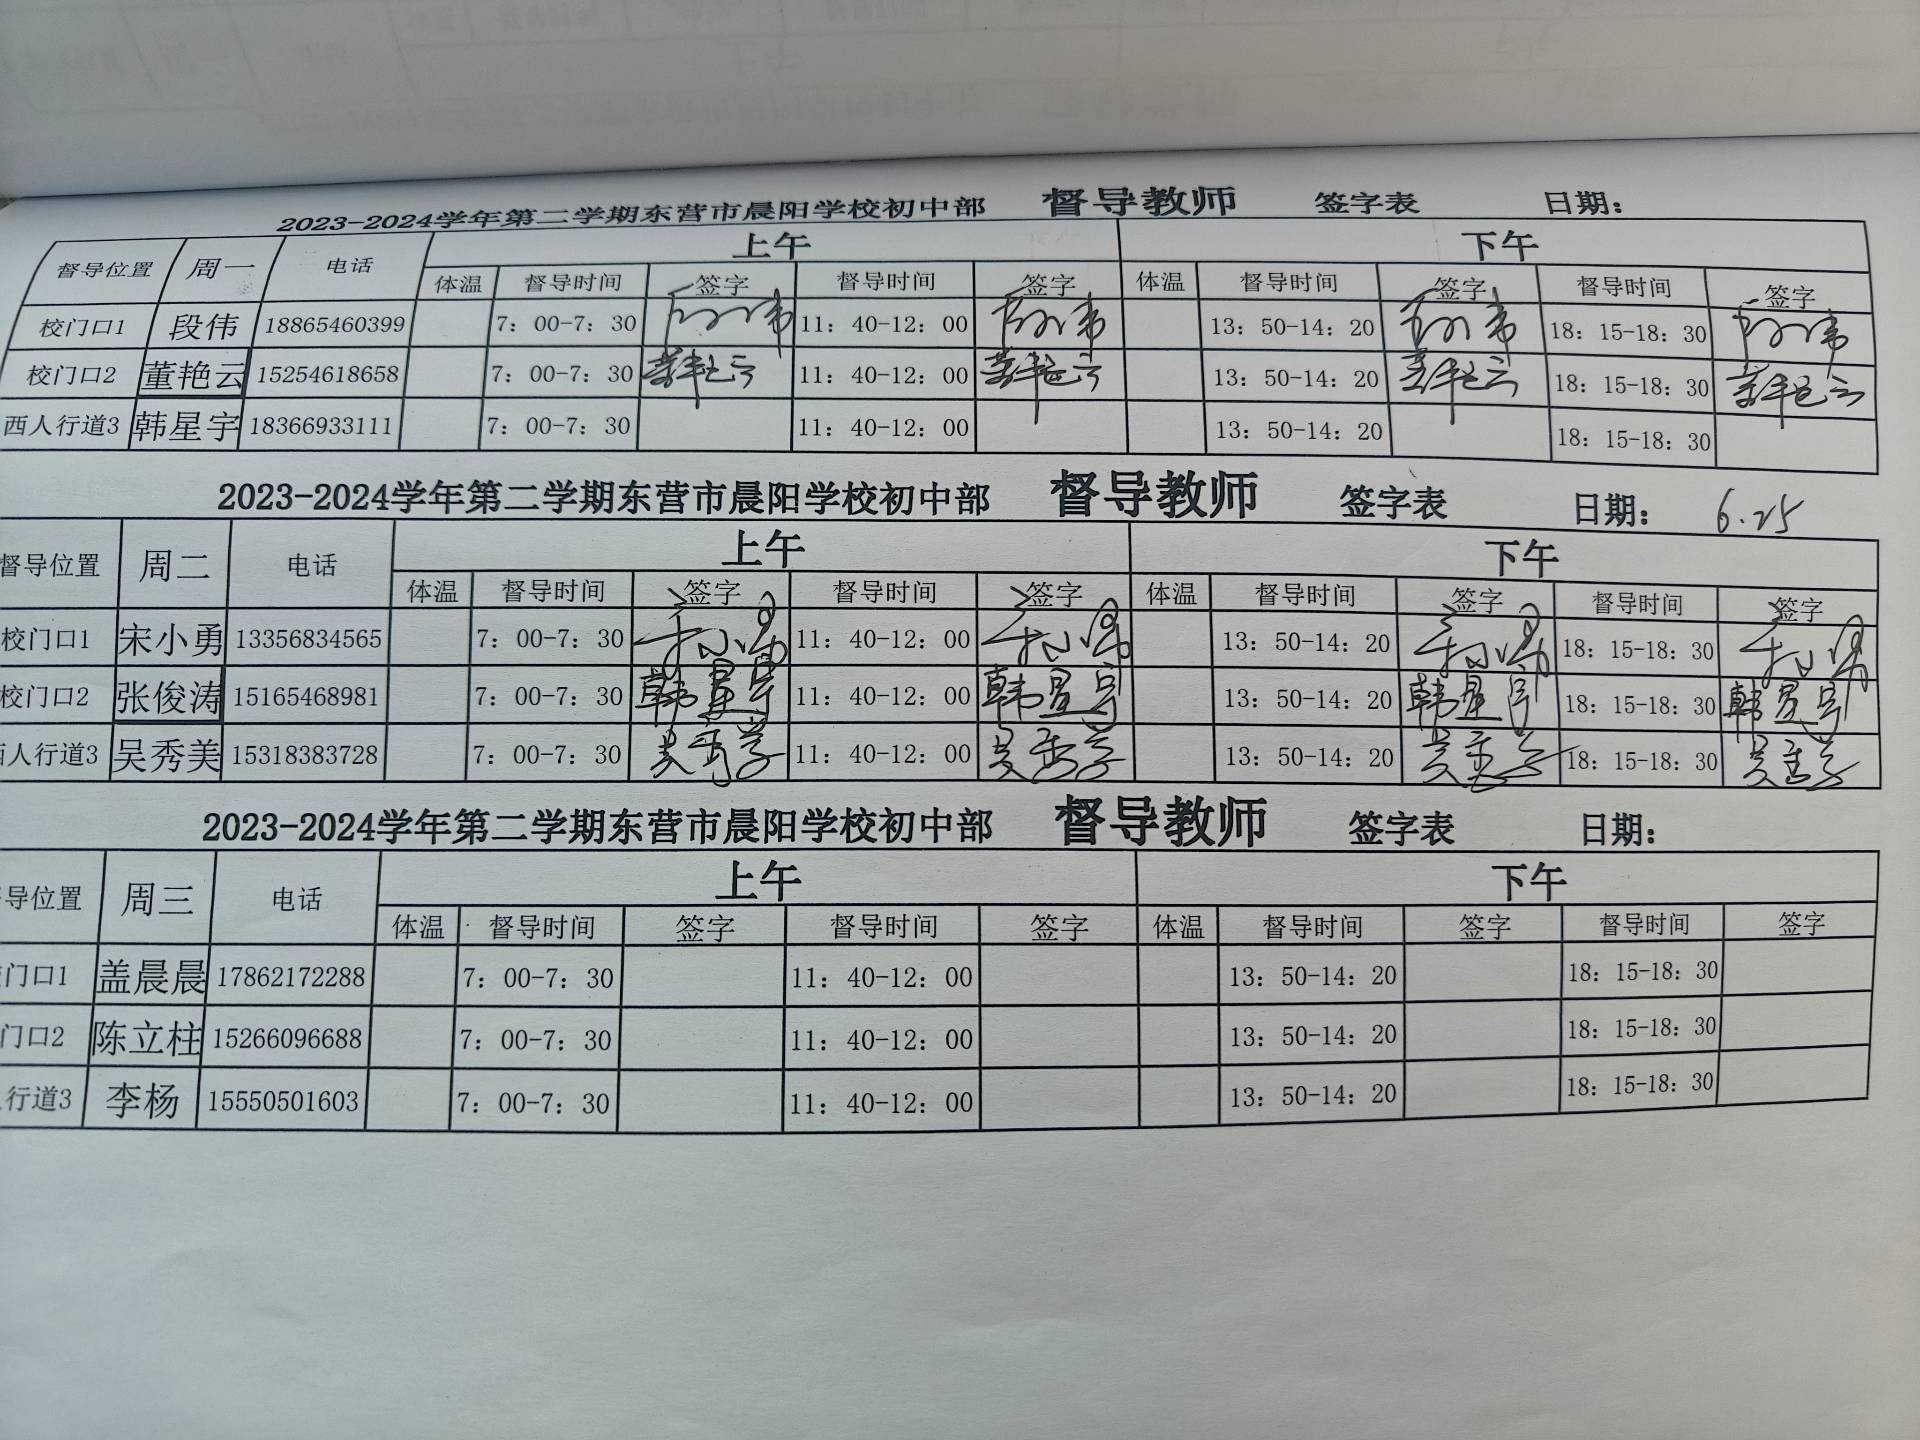 2023-2024学年第二学期东营市晨阳学校初中部 督导教师 签字表 日期：
督导位置 周一 电话 上午 下午
体温 督导时间 签字 督导时间 签字 体温 督导时间 签字 督导时间 签字
校门口1 段伟 18865460399 7：00-7：30 段伟 11：40-12：00 段伟 13：50-14：20 段伟 18：15-18：30 段伟
校门口2 董艳云 15254618658 7：00-7：30 董艳云 11：40-12：00 董艳云 13：50-14：20 董艳云 18：15-18：30 董艳云
西人行道3 韩星宇 18366933111 7：00-7：30 11：40-12：00 13：50-14：20 18：15-18：30
2023-2024学年第二学期东营市晨阳学校初中部 督导教师 签字表 日期： 6.25
督导位置 周二 电话 上午 下午
体温 督导时间 签字 督导时间 签字 体温 督导时间 签字 督导时间 签字
校门口1 宋小勇 13356834565 7：00-7：30 宋小勇 11：40-12：00 宋小勇 13：50-14：20 宋小勇 18：15-18：30 宋小勇
校门口2 张俊涛 15165468981 7：00-7：30 韩星宇 11：40-12：00 韩星宇 13：50-14：20 韩星宇 18：15-18：30 韩星宇
人行道3 吴秀美 15318383728 7：00-7：30 吴秀美 11：40-12：00 吴秀美 13：50-14：20 吴秀美 18：15-18：30 吴秀美
2023-2024学年第二学期东营市晨阳学校初中部 督导教师 签字表 日期：
导位置 周三 电话 上午 下午
体温 督导时间 签字 督导时间 签字 体温 督导时间 签字 督导时间 签字
门口1 盖晨晨 17862172288 7：00-7：30 11：40-12：00 13：50-14：20 18：15-18：30
门口2 陈立柱 15266096688 7：00-7：30 11：40-12：00 13：50-14：20 18：15-18：30
行道3 李杨 15550501603 7：00-7：30 11：40-12：00 13：50-14：20 18：15-18：30